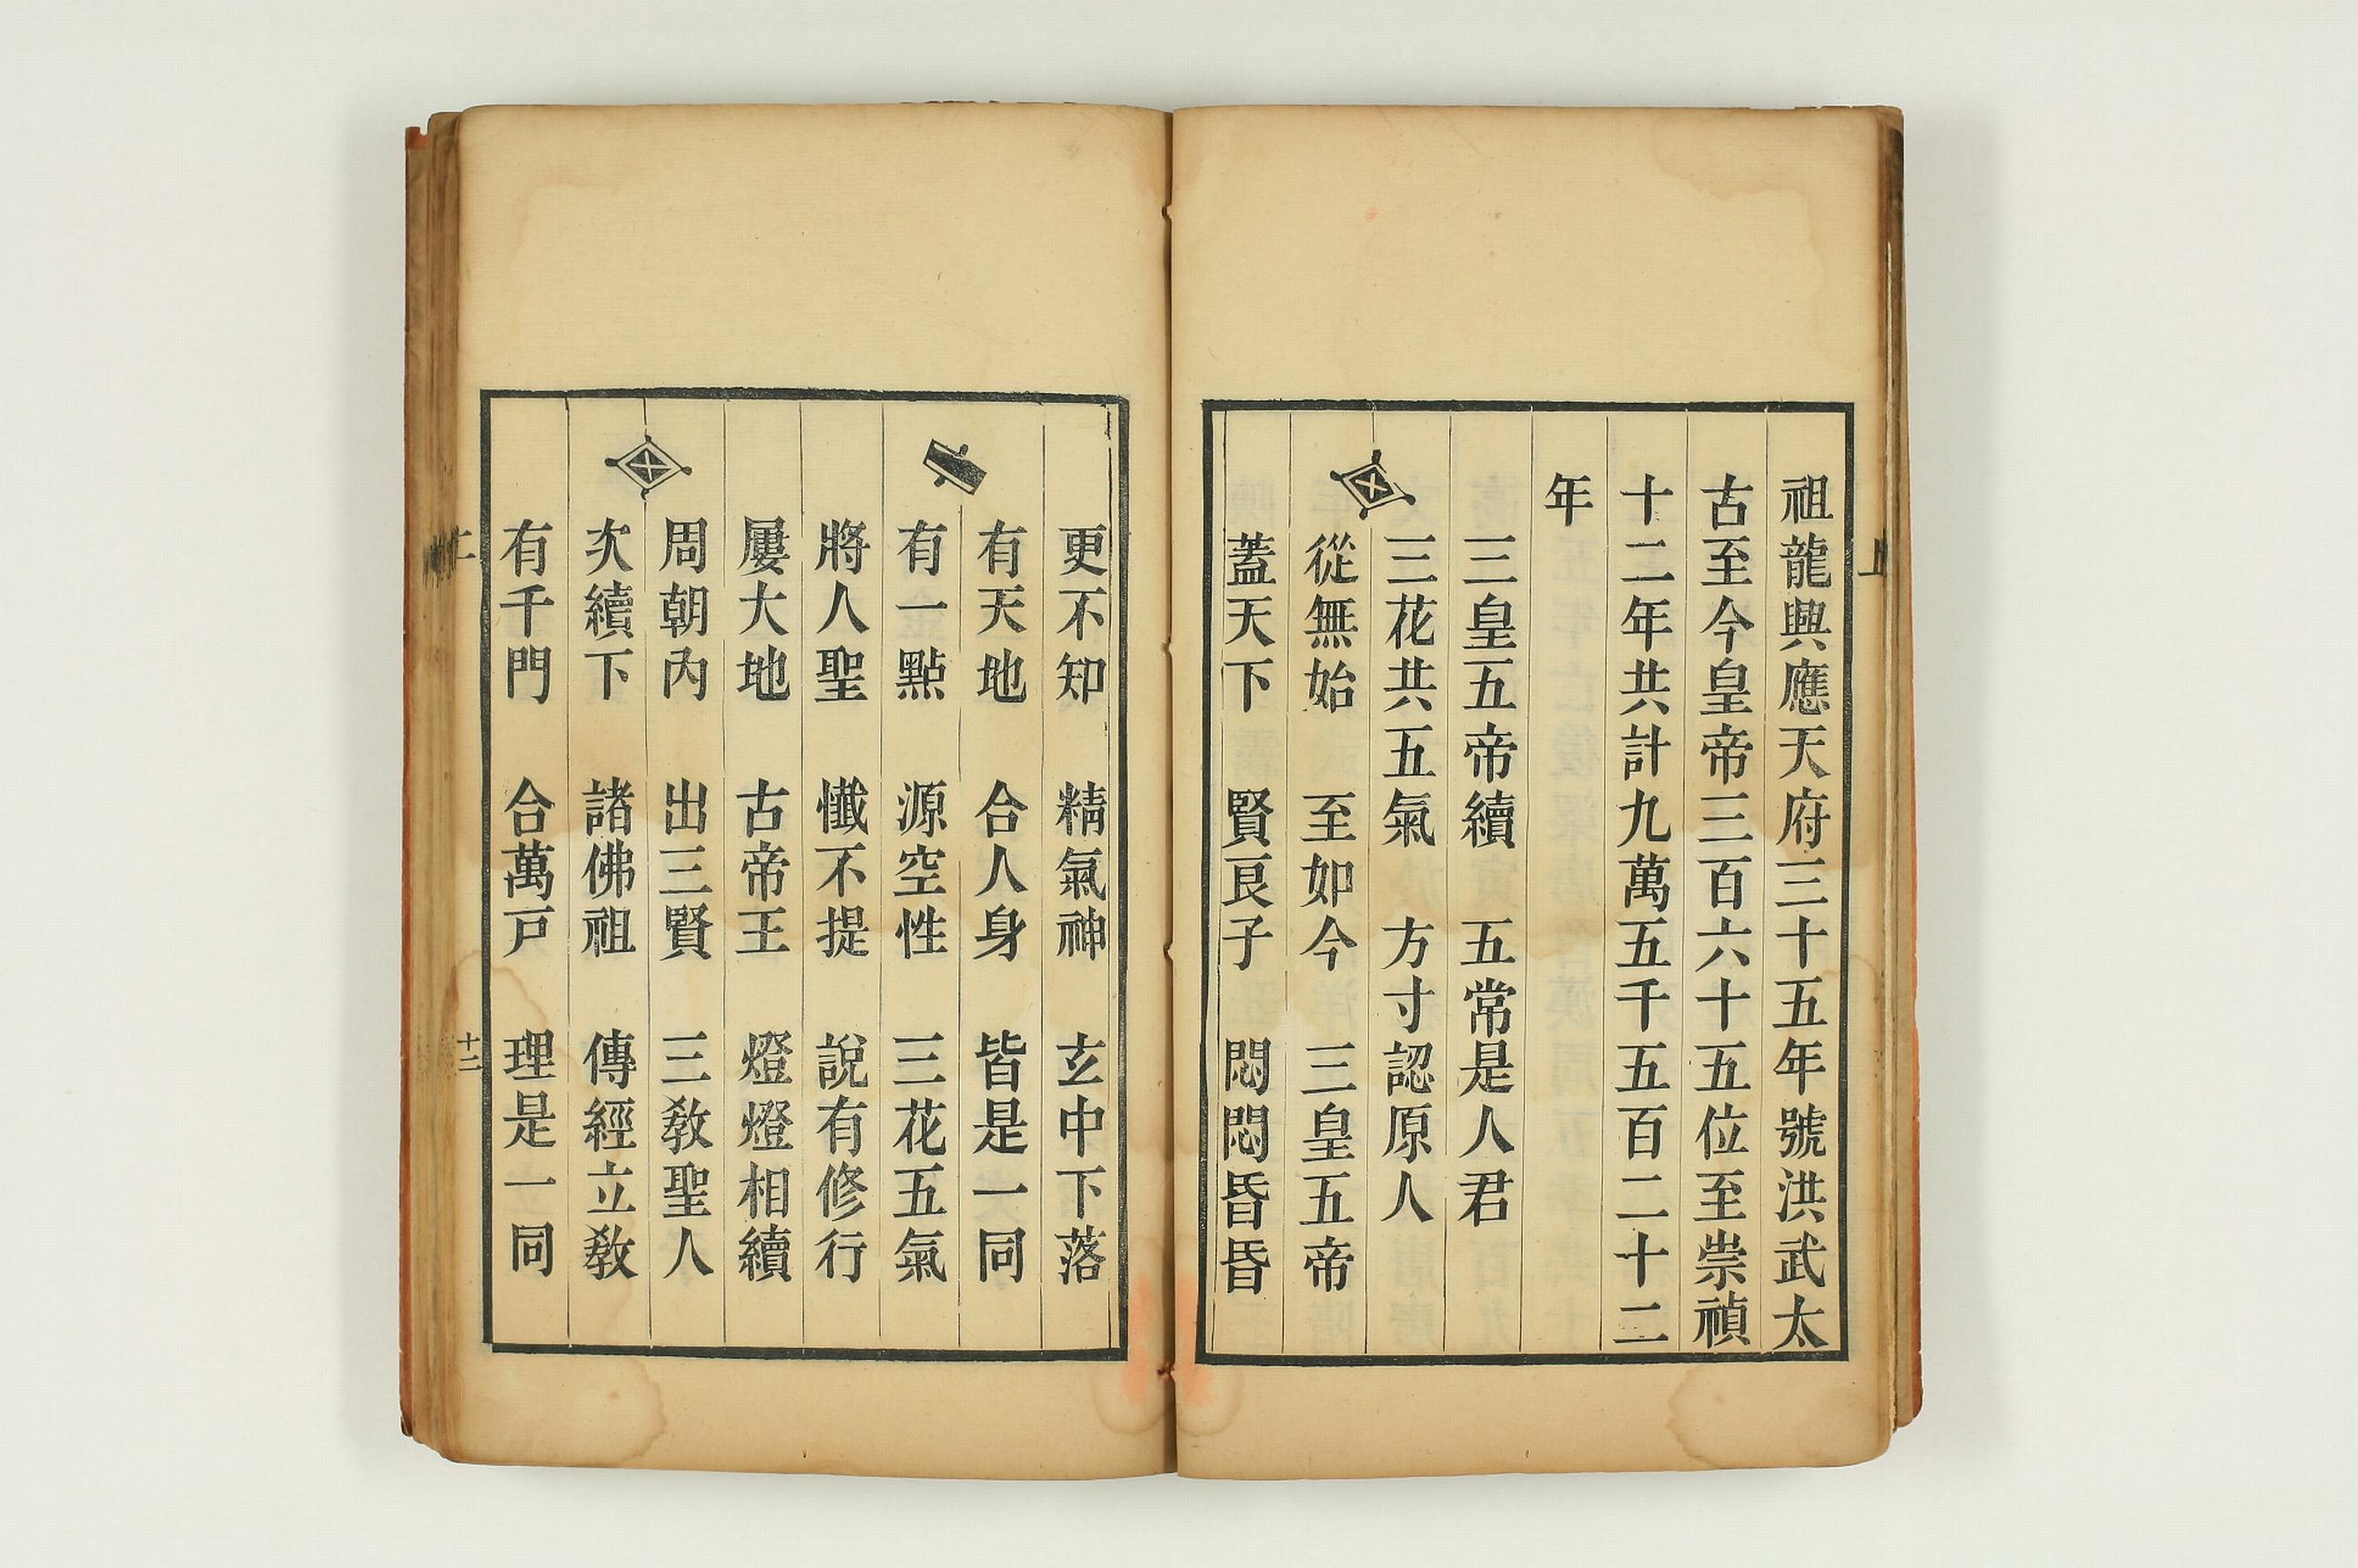 祖龍興應天府三十五年號洪武太
古至今皇帝三百六十五位至崇禎
十二年共計九萬五千五百二十二
年
三皇五帝續　五常是人君
三花共五氣　方寸認原人
從無始　至如今　三皇五帝
蓋天下　賢良子　悶悶昏昏
更不知　精氣神　玄中下落
有天地　合人身　皆是一同
有一點　源空性　三花五氣
將人聖　懺不提　說有修行
屢大地　古帝王　燈燈相續
周朝內　出三賢　三敎聖人
次續下　諸佛祖　傳經立敎
有千門　合萬戸　理是一同
十二